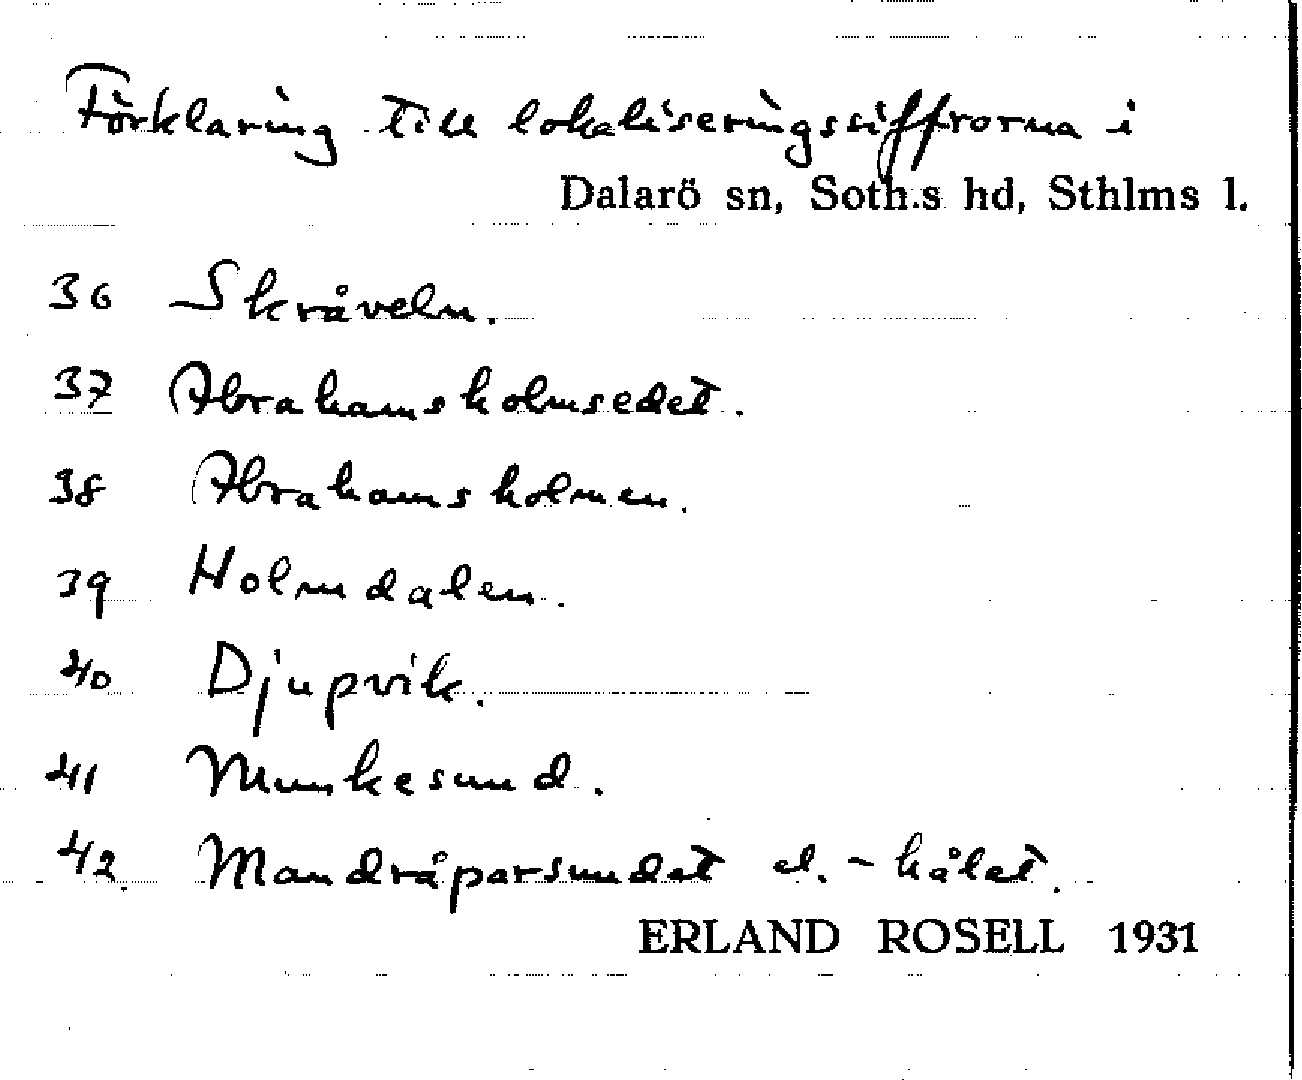 Förklaring till lokaliseringssiffrorna i
Dalarö sn, Soth.s hd, Sthlms l.
36 Skråveln.
37 Abrahamsholmsedet.
38 Abrahamsholmen.
39 Holmdalen.
40 Djupvik.
41 Munkesund.
42 Mandråparsundet el. -hålet.
ERLAND ROSELL 1931